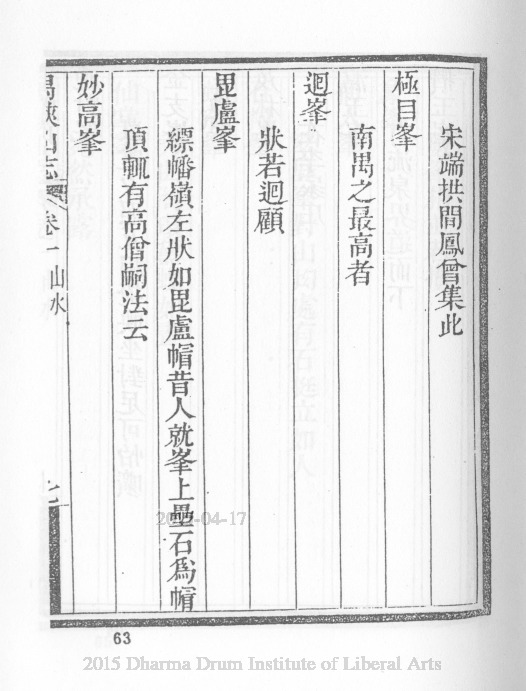 宋端拱間鳳曾集此
極目峯
南禺之最高者
迴峯
狀若迴顧
毘盧峯
縹幡嶺左狀如毘盧帽昔人就峯上壘石爲帽
頂輒有高僧嗣法云
妙高峯
禺峽山志 卷一 山水 七
63
2015-04-17
2015 Dharma Drum Institute of Liberal Arts